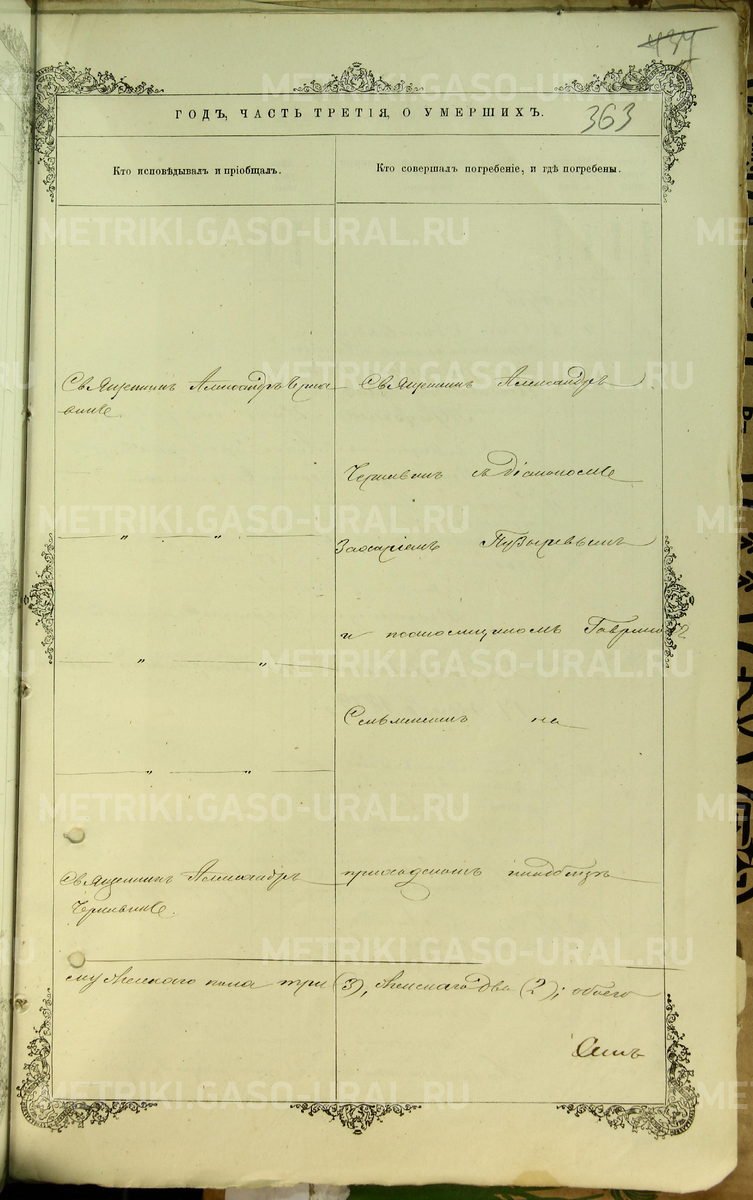 437
ГОДЪ, ЧАСТЬ ТРЕТІЯ, О УМЕРШИХЪ.
363
Кто исповѣдывалъ и пріобщалъ.
Кто совершалъ погребеніе, и гдѣ погребены.
Священникъ Александръ
Священникъ Александръ
съ діакономъ
Захаріемъ Пузыревымъ
и псаломщикомъ
на
Священникъ Александръ
приходскомъ кладбищѣ
мужескаго пола три (3), женскаго два (2); обоего
METRIKI.GASO-URAL.RU